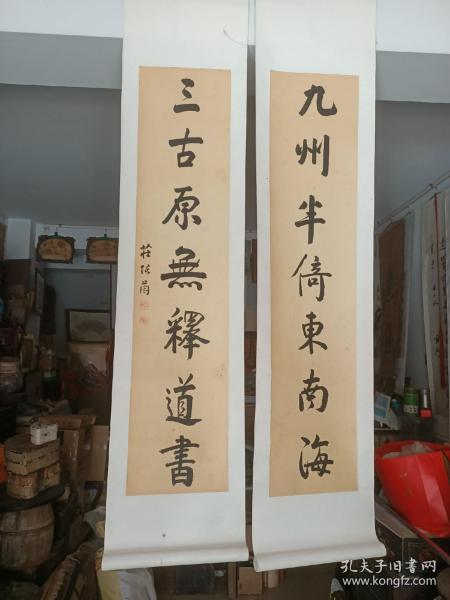 九州半倚東南海
三古原無釋道書
莊陔蘭
孔夫子旧书网
www.kongfz.com